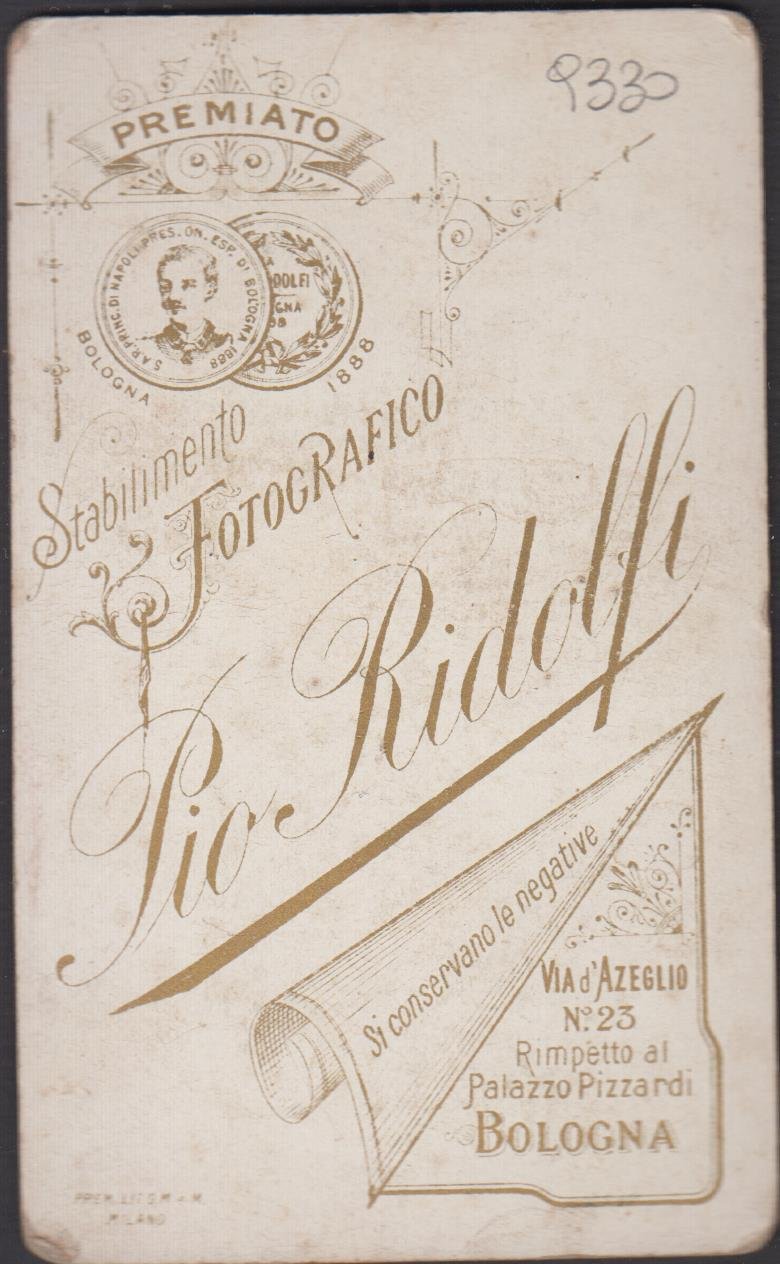 9330
PREMIATO
S.A.R. PRINC. DI NAPOLI PRES. ON. ESP. DI BOLOGNA 1888
DOLFI
GNA
88
BOLOGNA
1888
Stabilimento
FOTOGRAFICO
Pio Ridolfi
Si conservano le negative
VIA d'AZEGLIO
No. 23
Rimpetto al
Palazzo Pizzardi
BOLOGNA
PREM. LIT.
MILANO